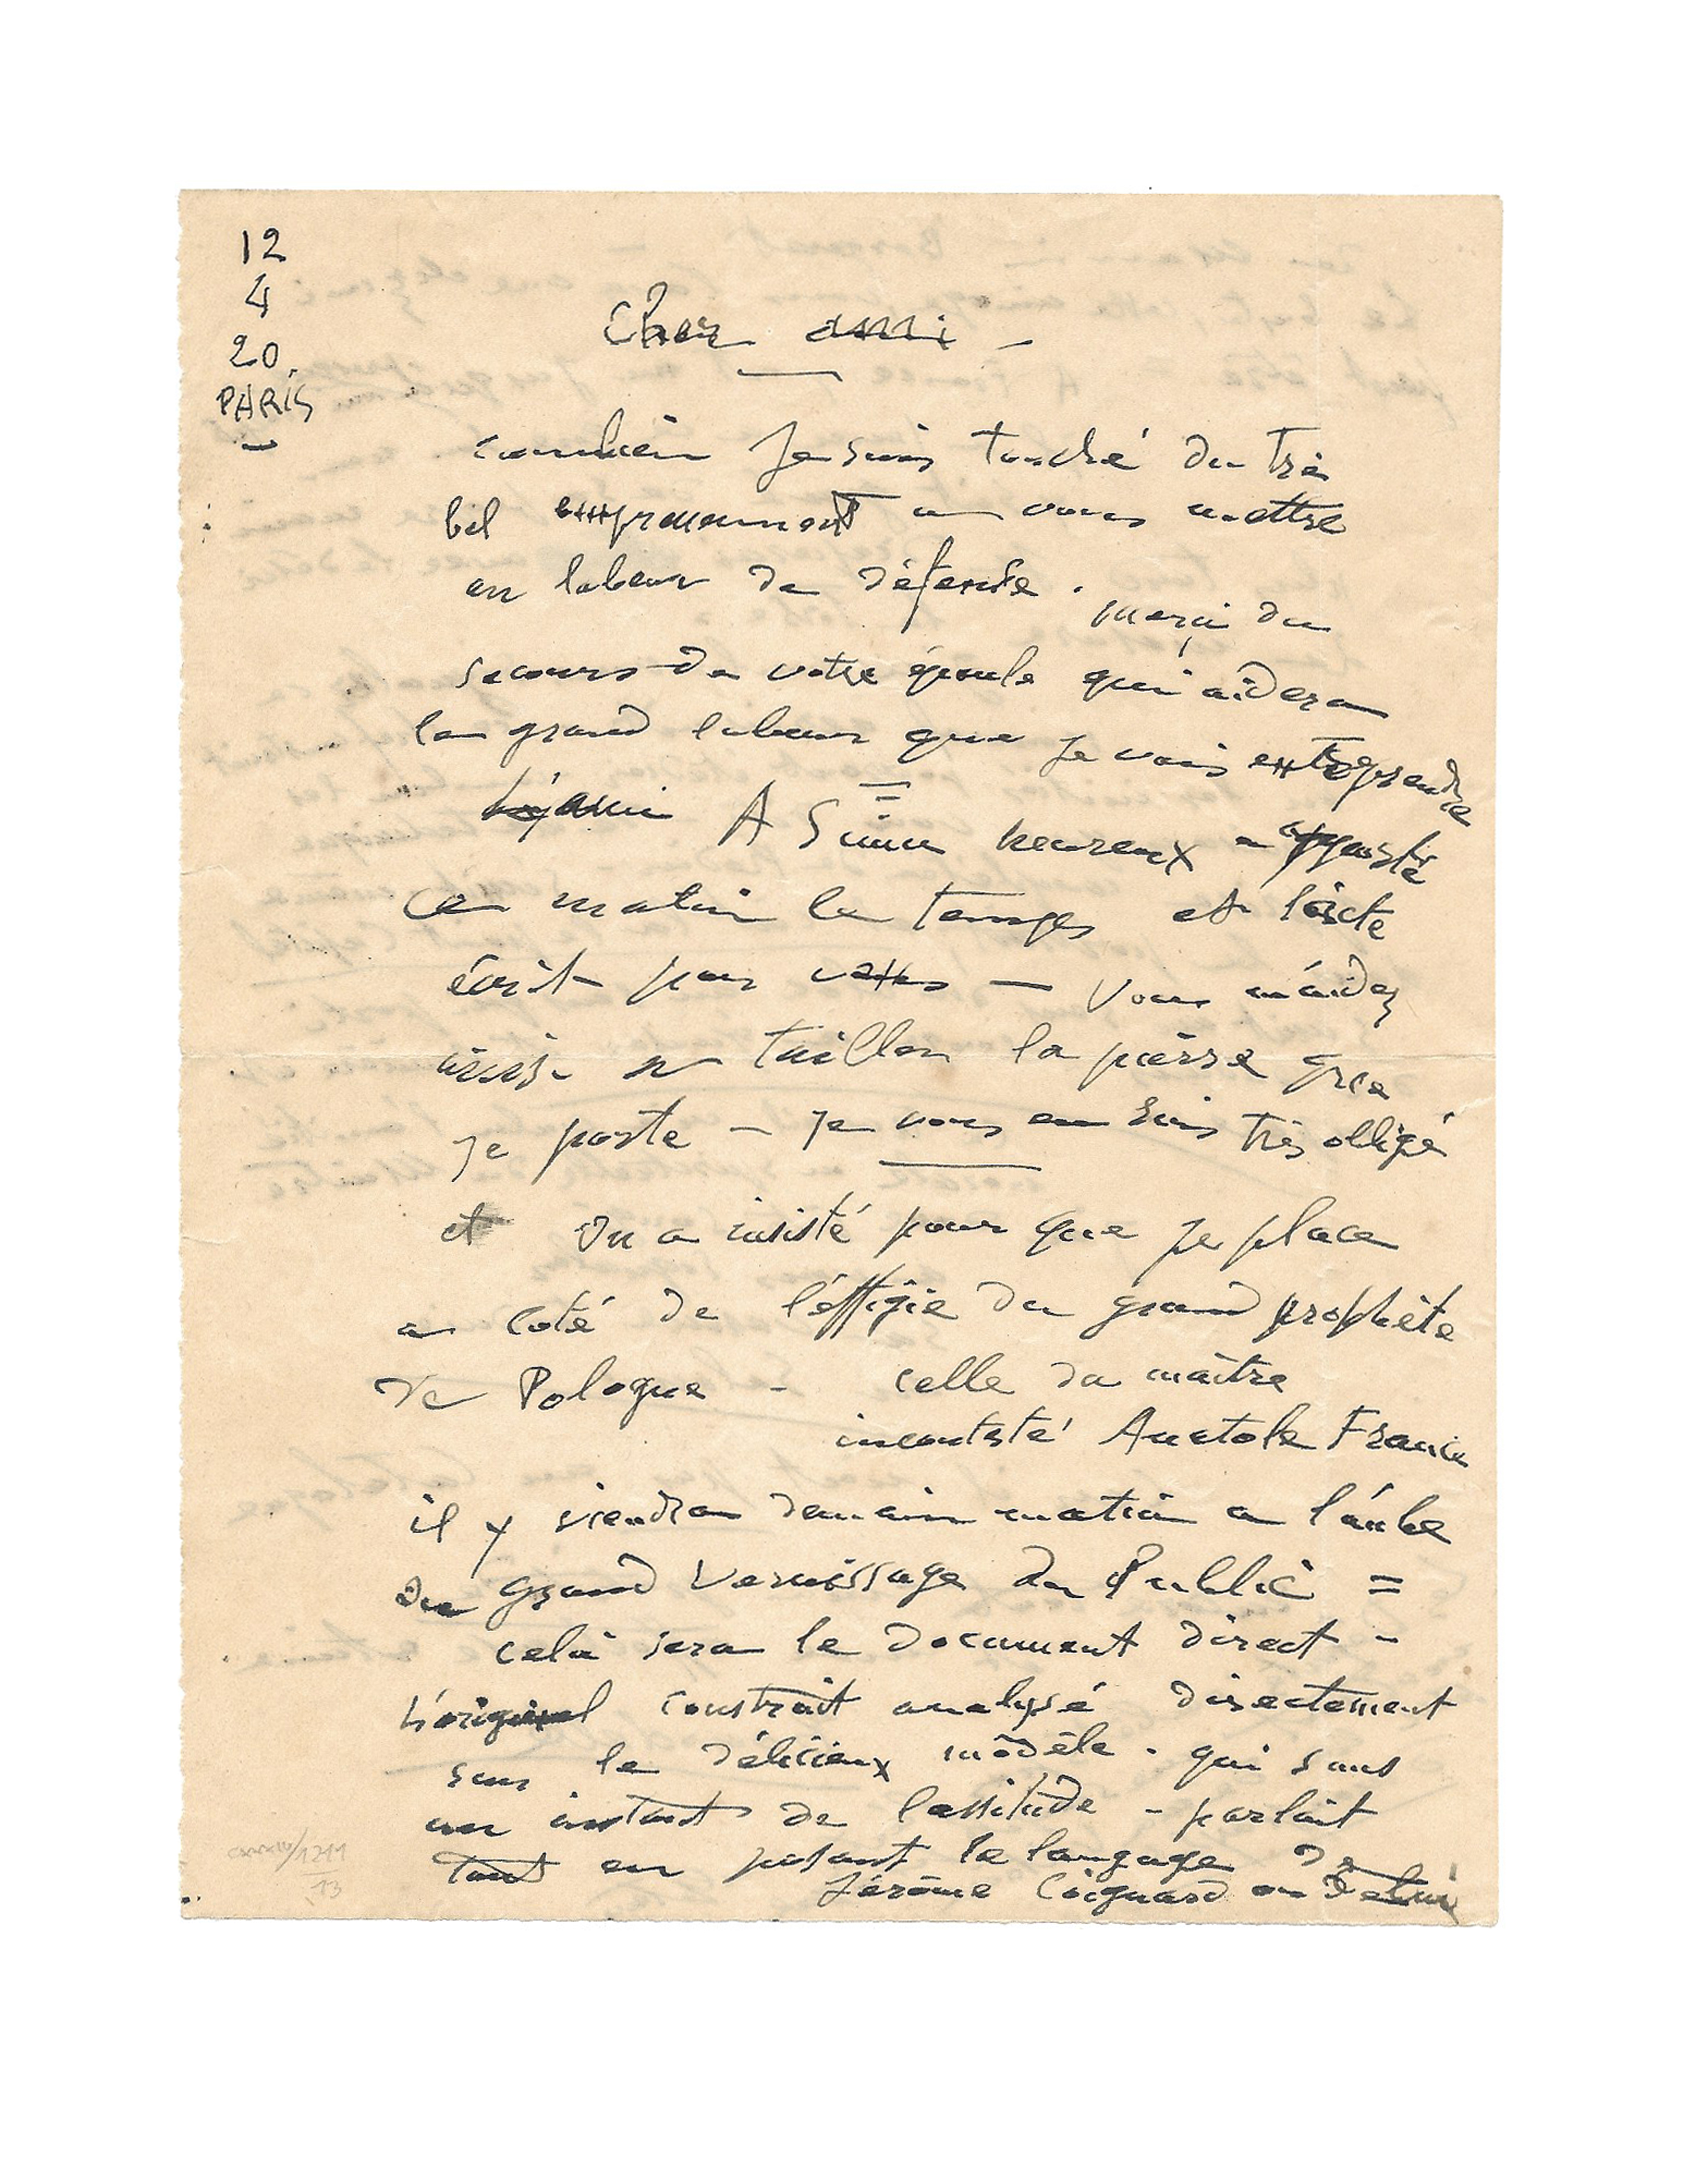 12
4
20.
PARIS
Cher ami -
combien Je suis touché du très
bel empressement a vous mettre
en labeur de défense. merçi du
secours de votre épaule qui aidera
le grand labeur que je vais entreprendre
L'ami A Suarès heureux a apporté
ce matin le temps et l'acte
écrit par vous — Vous m'áidez
ainsi a tailler la pierre que
je porte - je vous en suis très obligé
et On a insisté pour que je place
a coté de l'éffigie du grand prophète
de Pologne - celle du maître
incontesté Anatole France
il y viendra demain matin a l'áube
du grand Vernissage du Public =
celà sera le document direct -
L'original construit analysé directement
sur le délicieux môdèle. qui sans
un instant de lassitude - parlait
tout en posant le langage de
Jérôme Coignard ou